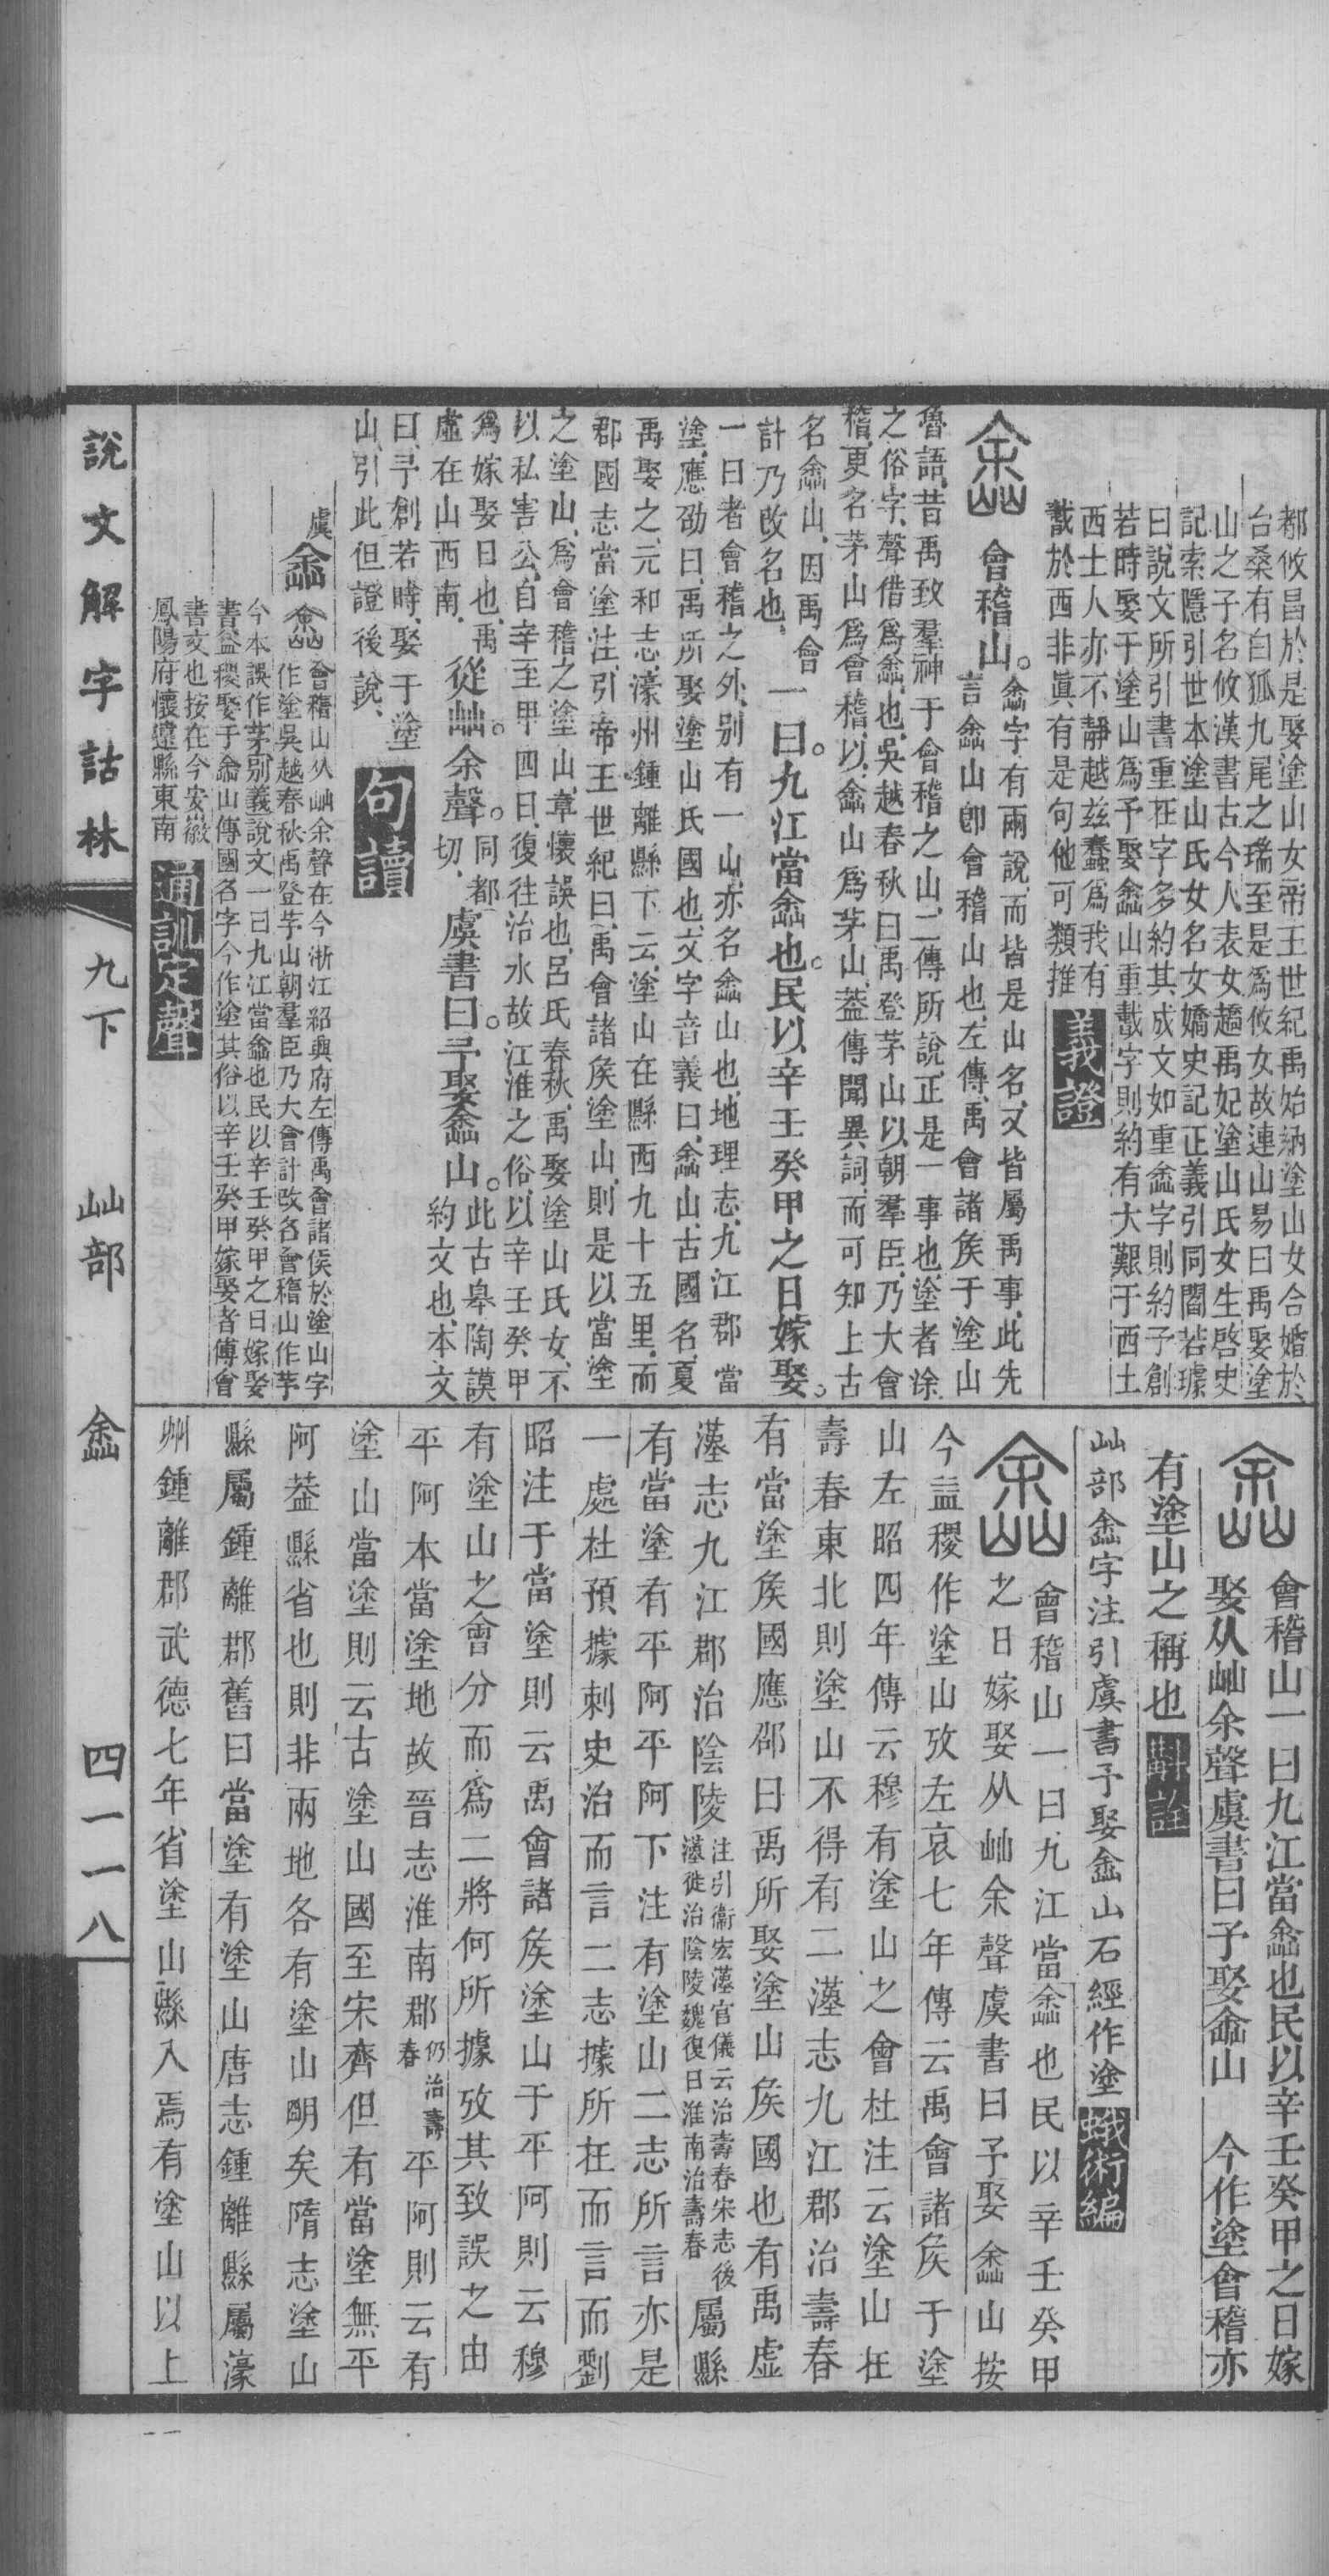 都攸昌於是娶塗山女帝王世紀禹始納塗山女合婚於
台桑有白狐九尾之瑞至是爲攸女故連山易曰禹娶塗
山之子名攸漢書古今人表女趫禹妃塗山氏女生啓史
記索隱引世本塗山氏女名女嬌史記正義引同閻若璩
曰說文所引書重在字多約其成文如重嵞字則約予創
若時娶于塗山爲予娶嵞山重載字則約有大艱于西土
西土人亦不靜越茲蠢爲我有
載於西非眞有是句他可類推 義證
會稽山。嵞字有兩說、而皆是山名、又皆屬禹事、此先
言嵞山卽會稽山也、左傳、禹會諸矦于塗山
魯語、昔禹致羣神于會稽之山、二傳所說、正是一事也、塗者涂
之俗字、聲借爲嵞也、吳越春秋曰、禹登茅山以朝羣臣、乃大會
稽、更名茅山爲會稽、以嵞山爲茅山、葢傳聞異詞、而可知上古
名嵞山、因禹會
計乃改名也、一曰。九江當嵞也。民以辛壬癸甲之日嫁娶。
一曰者會稽之外、別有一山、亦名嵞山也、地理志、九江郡當
塗、應劭曰、禹所娶塗山氏國也、文字音義曰、嵞山、古國名、夏
禹娶之、元和志、濠州鍾離縣下云、塗山在縣西九十五里、而
郡國志當塗注、引帝王世紀曰、禹會諸矦塗山、則是以當塗
之塗山、爲會稽之塗山、章懷誤也、呂氏春秋、禹娶塗山氏女、不
以私害公、自辛至甲四日、復往治水、故江淮之俗、以辛壬癸甲
爲嫁娶日也、禹
虛在山西南、從屾。余聲。同都切、虞書曰。予娶嵞山。此古皋陶謨
約文也、本文
曰、予創若時、娶于塗
山、引此但證後說、 句讀
虞 嵞 會稽山从屾余聲在今浙江紹興府左傳禹會諸侯於塗山字
作塗吳越春秋禹登茅山朝羣臣乃大會計改名會稽山作茅
今本誤作茅別義說文一曰九江當嵞也民以辛壬癸甲之日嫁娶
書益稷娶于嵞山傳國名字今作塗其俗以辛壬癸甲嫁娶者傅會
書文也按在今安徽
鳳陽府懷遠縣東南 通訓定聲
會稽山一曰九江當嵞也民以辛壬癸甲之日嫁
娶从屾余聲虞書曰予娶嵞山 今作塗會稽亦
有塗山之稱也 斠詮
屾部嵞字注引虞書予娶嵞山石經作塗 蛾術編
會稽山一曰九江當嵞也民以辛壬癸甲
之日嫁娶从屾余聲虞書曰予娶嵞山按
今益稷作塗山攷左哀七年傳云禹會諸矦于塗
山左昭四年傳云穆有塗山之會杜注云塗山在
壽春東北則塗山不得有二漢志九江郡治壽春
有當塗矦國應邵曰禹所娶塗山矦國也有禹虛
漢志九江郡治陰陵注引衞宏漢官儀云治壽春宋志後
漢徙治陰陵魏復曰淮南治壽春屬縣
有當塗有平阿平阿下注有塗山二志所言亦是
一處杜預據刺史治而言二志據所在而言而劉
昭注于當塗則云禹會諸矦塗山于平阿則云穆
有塗山之會分而爲二將何所據攷其致誤之由
平阿本當塗地故晉志淮南郡仍治壽春平阿則云有
塗山當塗則云古塗山國至宋齊但有當塗無平
阿葢縣省也則非兩地各有塗山明矣隋志塗山
縣屬鍾離郡舊曰當塗有塗山唐志鍾離縣屬濠
州鍾離郡武德七年省塗山縣入焉有塗山以上
說文解字詁林 九下 屾部 嵞 四一一八